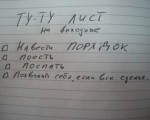 ТУ-ТУ ЛИСТ
на выходные
□ Навести ПОРЯДОК
□ поесть
□ Поспать
□ Похвалить себя, если все сделал